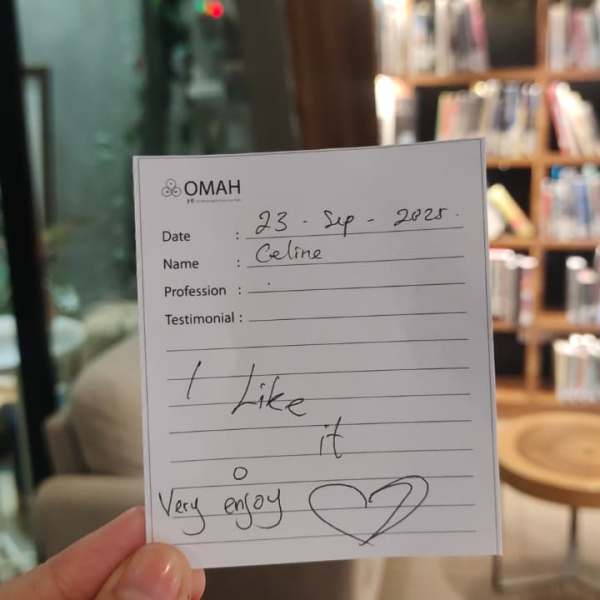 OMAH
Date : 23 - Sep - 2025.
Name : Celine
Profession : .
Testimonial :
I Like
it
Very enjoy